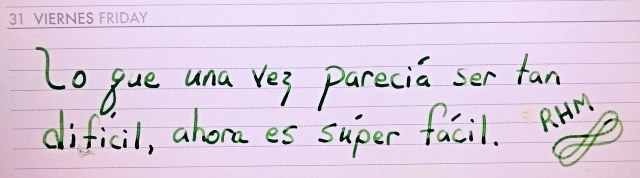 31 VIERNES FRIDAY
Lo que una vez pareciá ser tan
difícil, ahora es súper fácil.
RHM